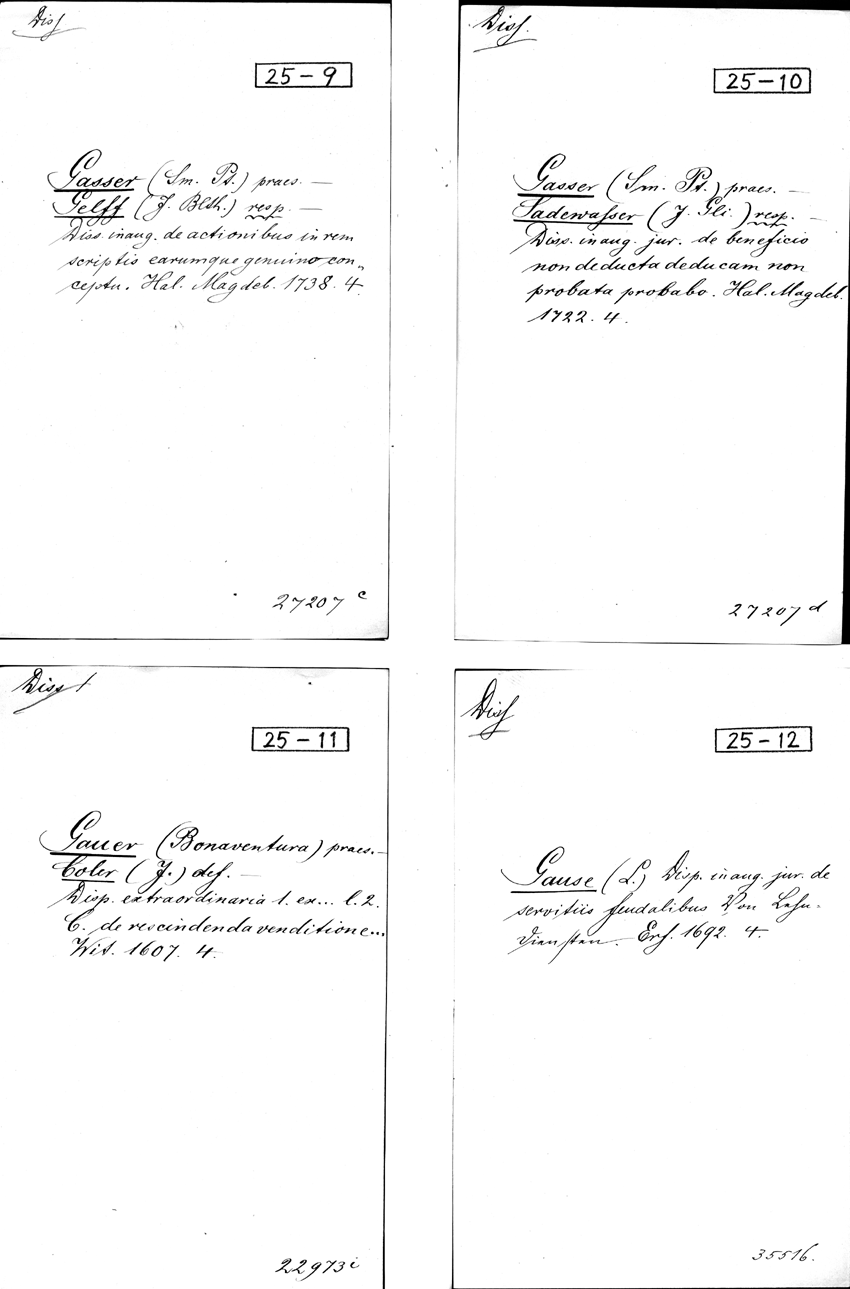 Diss
25-9
Gasser (Sm. Pt.) praes. —
Gelff (J. Blth.) resp. —
Diss. inaug. de actionibus in rem
scriptis earumque genuino con„
ceptu. Hal. Magdeb. 1738. 4.
27207 c
Diss.
25-10
Gasser (Sm. Pt.) praes. —
Sadewasser (J. Gli.) resp. —
Diss. inaug. jur. de beneficio
non deducta deducam non
probata probabo. Hal. Magdeb.
1722. 4.
27207 d
Diss
25-11
Gauer (Bonaventura) praes. —
Coler (J.) def. —
Disp. extraordinaria 1. ex... l. 2.
C. de rescindenda venditione...
Wit. 1607. 4.
22973 i
Diss
25-12
Gause (L.) Disp. inaug. jur. de
servitiis feudalibus Von Lehn-
diensten. Erf. 1692. 4.
35516.